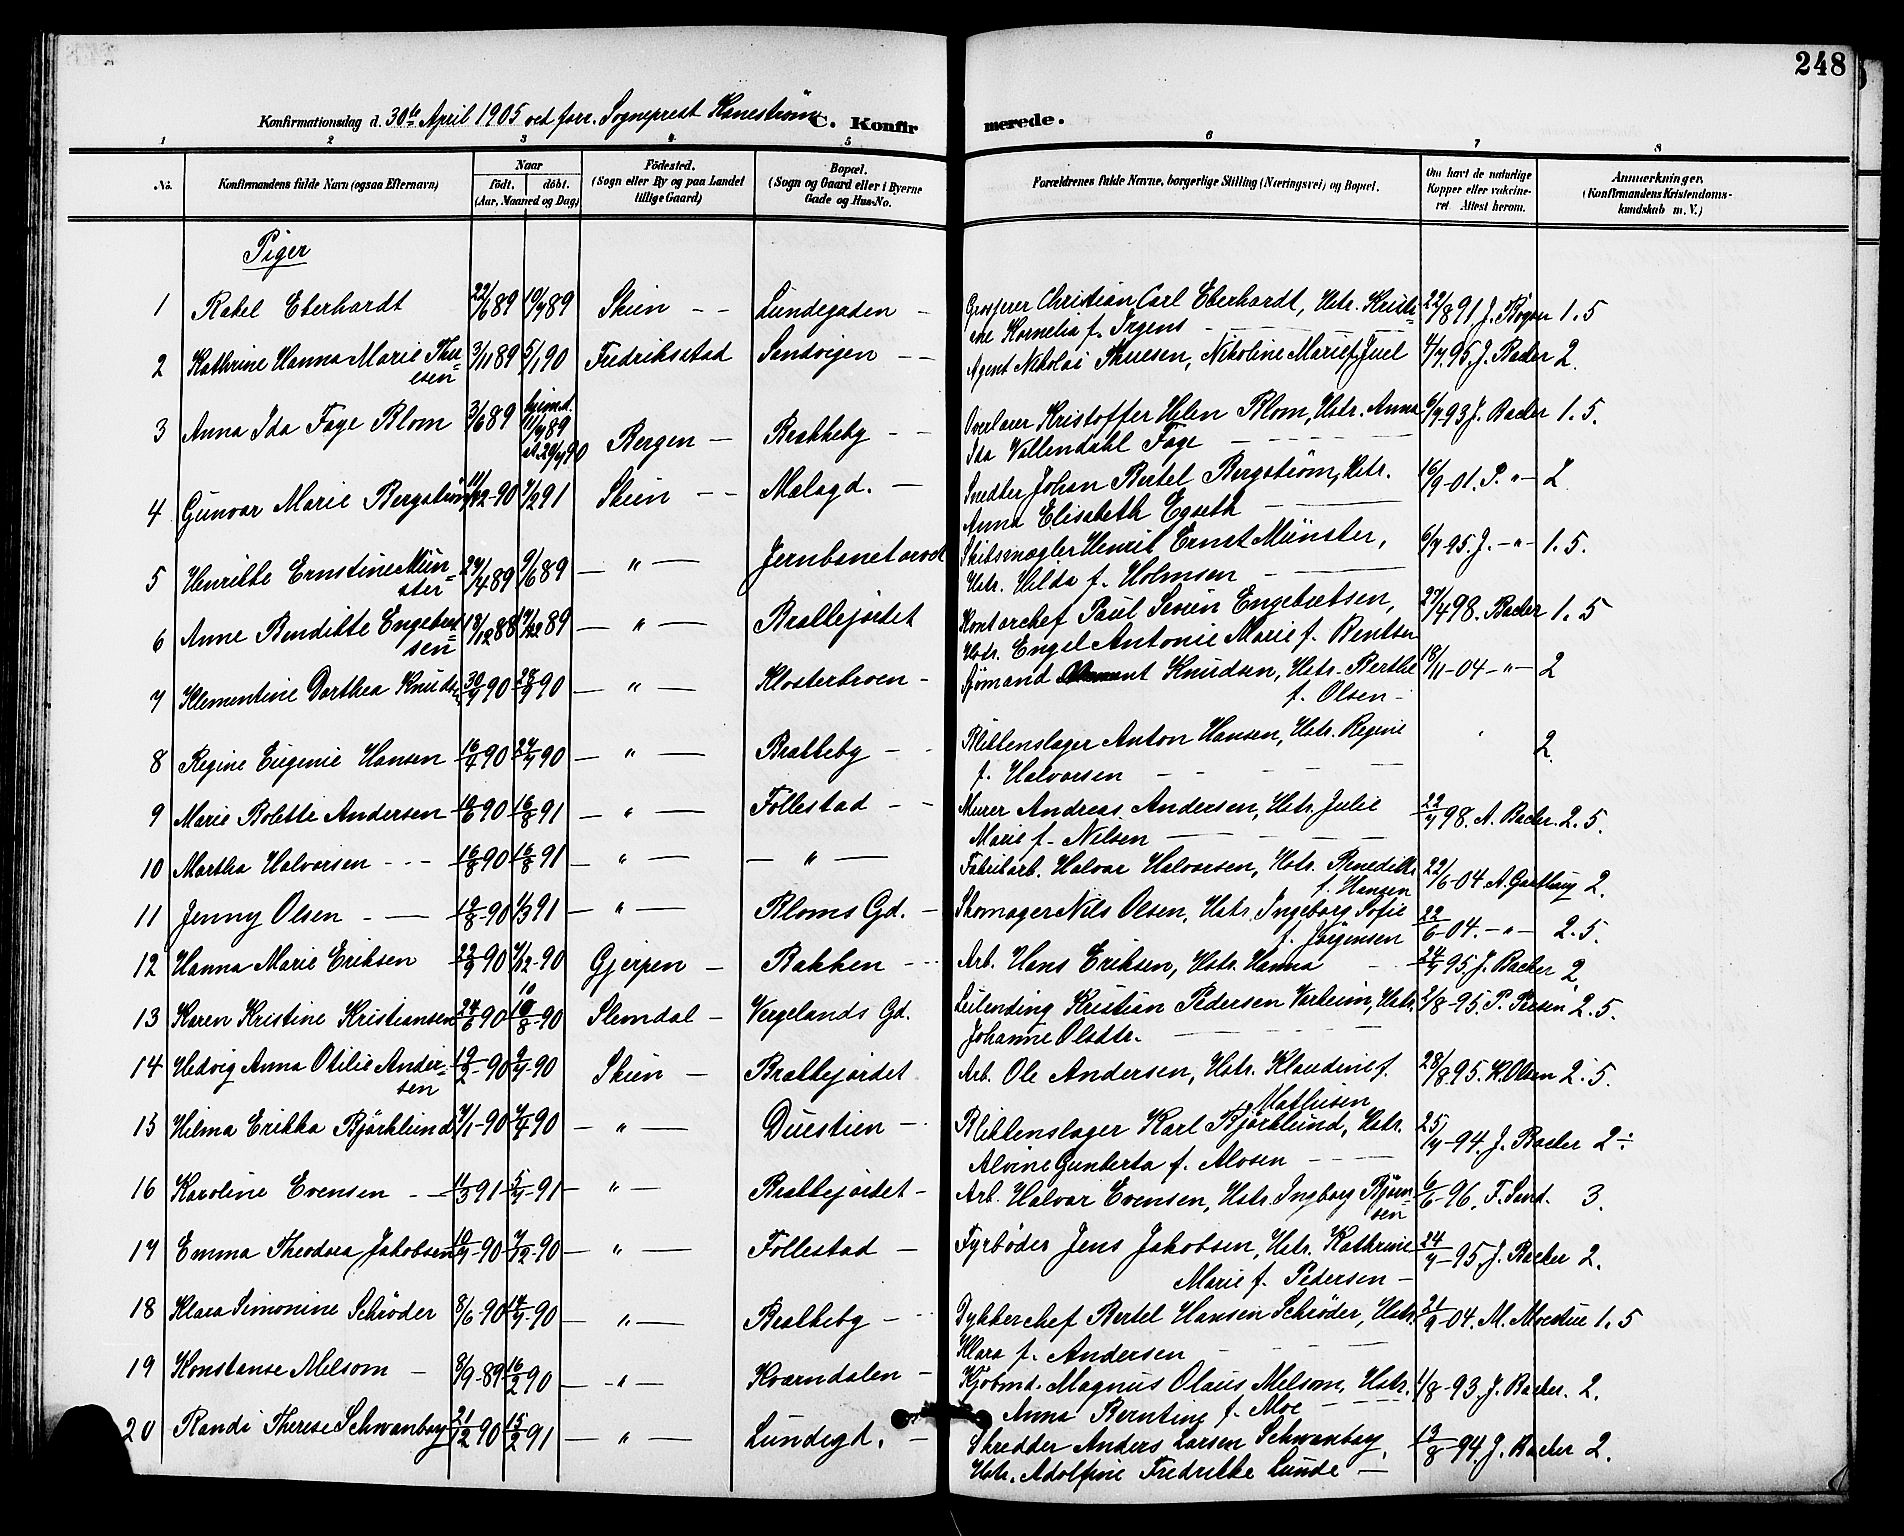 248
Konfirmationsdag d. 30te April 1905 ved forr. Sogneprest Kanestrøm
C. Konfirmerede.
1 2 3 4 5 6 7 8
No. Konfirmandens fulde Navn (ogsaa Efternavn)
Naar født. døbt. (Aar, Maaned og Dag)
Fødested. (Sogn eller By og paa Landet tillige Gaard)
Bopæl. (Sogn og Gaard eller i Byerne Gade og Hus-No.
Forældrenes fulde Navne, borgerlige Stilling (Næringsvei) og Bopæl.
Om havt de naturlige Kopper eller vakcineret. Attest herom.
Anmærkninger. (Konfirmandens Kristendomskundskab m. V.)
Piger
1 Rakel Eberhardt 22/6 89 19/7 89 Skien - - Lundegaden - Grosserer Christian Carl Eberhardt, Hstr. Kristine Kornelia f. Irgens 22/8 91 J. 1.5
2 Kathrine Hanna Marie Thuesen 3/11 89 5/1 90 Fredriksstad Sandvigen - - Agent Nikolai Thuesen, Nikoline Marie f. Juel 4/7 95 J. Backer 2.
3 Anna Ida Faye Blom 3/6 89 hjemd. 11/7 89 20/7 90 Bergen - Bratteby - - Overlærer Kristoffer Helen Blom, Hstr. Anna Ida Vollendahl Faye 6/7 93 J. Backer 1.5.
4 Gunvor Marie Bergstrøm 11/12-90 7/2 91 Skien - - Mælagd. - Snedker Johan Bertel Bergstrøm, Hstr. Anna Elisabeth Egseth 16/9-01. P. " 2
5 Henrikke Ernstine Münster 27/4 89 9/6 89 - " - Jernbanetorvet Skibsmægler Henrik Ernst Münster, Hstr. Hilda f. Holmsen 6/7-95. J. -"- 1.5.
6 Anne Bendikte Engebretsen 13/12 88 17/2 89 - " - Brattejordet Kontorchef Paul Severin Engebretsen, Hstr. Engel Antonie Marie f. Bentsen 27/4 98. Backer 1.5
7 Klementine Dorthea Knuds. 30/7 90 28/9 90 - " - Klosterbroen - Sjømand Knudsen, Hstr. Berthe f. Olsen - 18/11-04 -"- 2
8 Regine Eugenie Hansen 16/4 90 27/7 90 - " - Bratteby - - Blikkenslager Anton Hansen, Hstr. Regine f. Halvorsen 2.
9 Marie Bolette Andersen 19/6 90 16/8 91 - " - Follestad - - Murer Andreas Andersen, Hstr. Julie Marie f. Nilsen 22/7 98. A. Backer. 2.5.
10 Martha Halvorsen - - - 16/8 90 16/8 91 - " - - " - Fabrikarb. Halvor Halvorsen, Hstr. Benedikte f. Hansen 22/6-04 A. Gaathaug 2.
11 Jenny Olsen - - 19/8-90 1/3 91 - " - Bloms Gd. - Skomager Nils Olsen, Hstr. Ingeborg Sofie f. Jørgensen 22/6-04. -"- 2.5.
12 Hanna Marie Eriksen 22/9 90 7/12-90 Gjerpen - Bakken - - Arb. Hans Eriksen, Hstr. Hanna 24/7 95. J. Backer 2.
13 Karen Kristine Kristiansen 24/6 90 10/8-90 Slemdal - Vergelands Gd. Leilending Kristian Pedersen Verheim, Hstr. Johanne Olsdtr. 2/8-95. P. 2.5.
14 Hedvig Anna Otilie Andersen 19/2-90 9/7-90 Skien - Brattejordet Arb. Ole Andersen, Hstr. Klaudine f. Mathisen 28/8 95. K. Olsen 2.5.
15 Hilma Erikka Bjørklund 7/1-90 7/4 90 - " - Duestien - Blikkenslager Karl Bjørklund, Hstr. Alvine Gunberta f. Alvsen 25/7-94. J. Backer 2÷
16 Karoline Evensen - 11/3 91 5/7-91 - " - Brattejordet - Arb. Halvor Evensen, Hstr. Ingborg Bjørnsen 6/6-96. F. Sand. 3.
17 Emma Theodora Jakobsen 18/7-90 7/12-90 - " - Follestad - Fyrbøder Jens Jakobsen, Hstr. Kathrine Marie f. Pedersen - 24/7-95. J. Backer 2.
18 Klara Simonine Schrøder 8/6-90 14/9-90 - " - Brattebg - Dykkerchef Bertel Hansen Schrøder, Hstr. Klara f. Andersen 21/9-04. M. Moestue 1.5
19 Konstanse Melsom - 8/9-89 16/2 90 - " - Kværndalen - Kjøbmd. Magnus Olaus Melsom, Hstr. Anna Bernting f. Moe 1/8-93. J. Backer. 2.
20 Randi Therese Schwanborg 21/12 90 15/2 91 - " - Lundegd. - Skredder Anders Larsen Schwanborg, Hstr. Adolfine Fredrikke Lunde - 13/8-94. J. Backer 2.